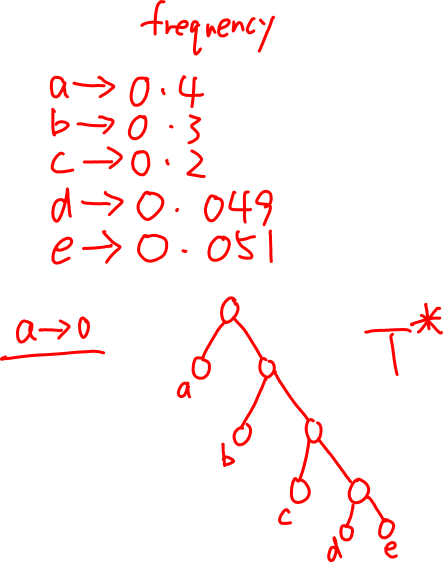 frequency
a→0.4
b→0.3
c→0.2
d→0.049
e→0.051
a→0
T*
a
b
c
d e